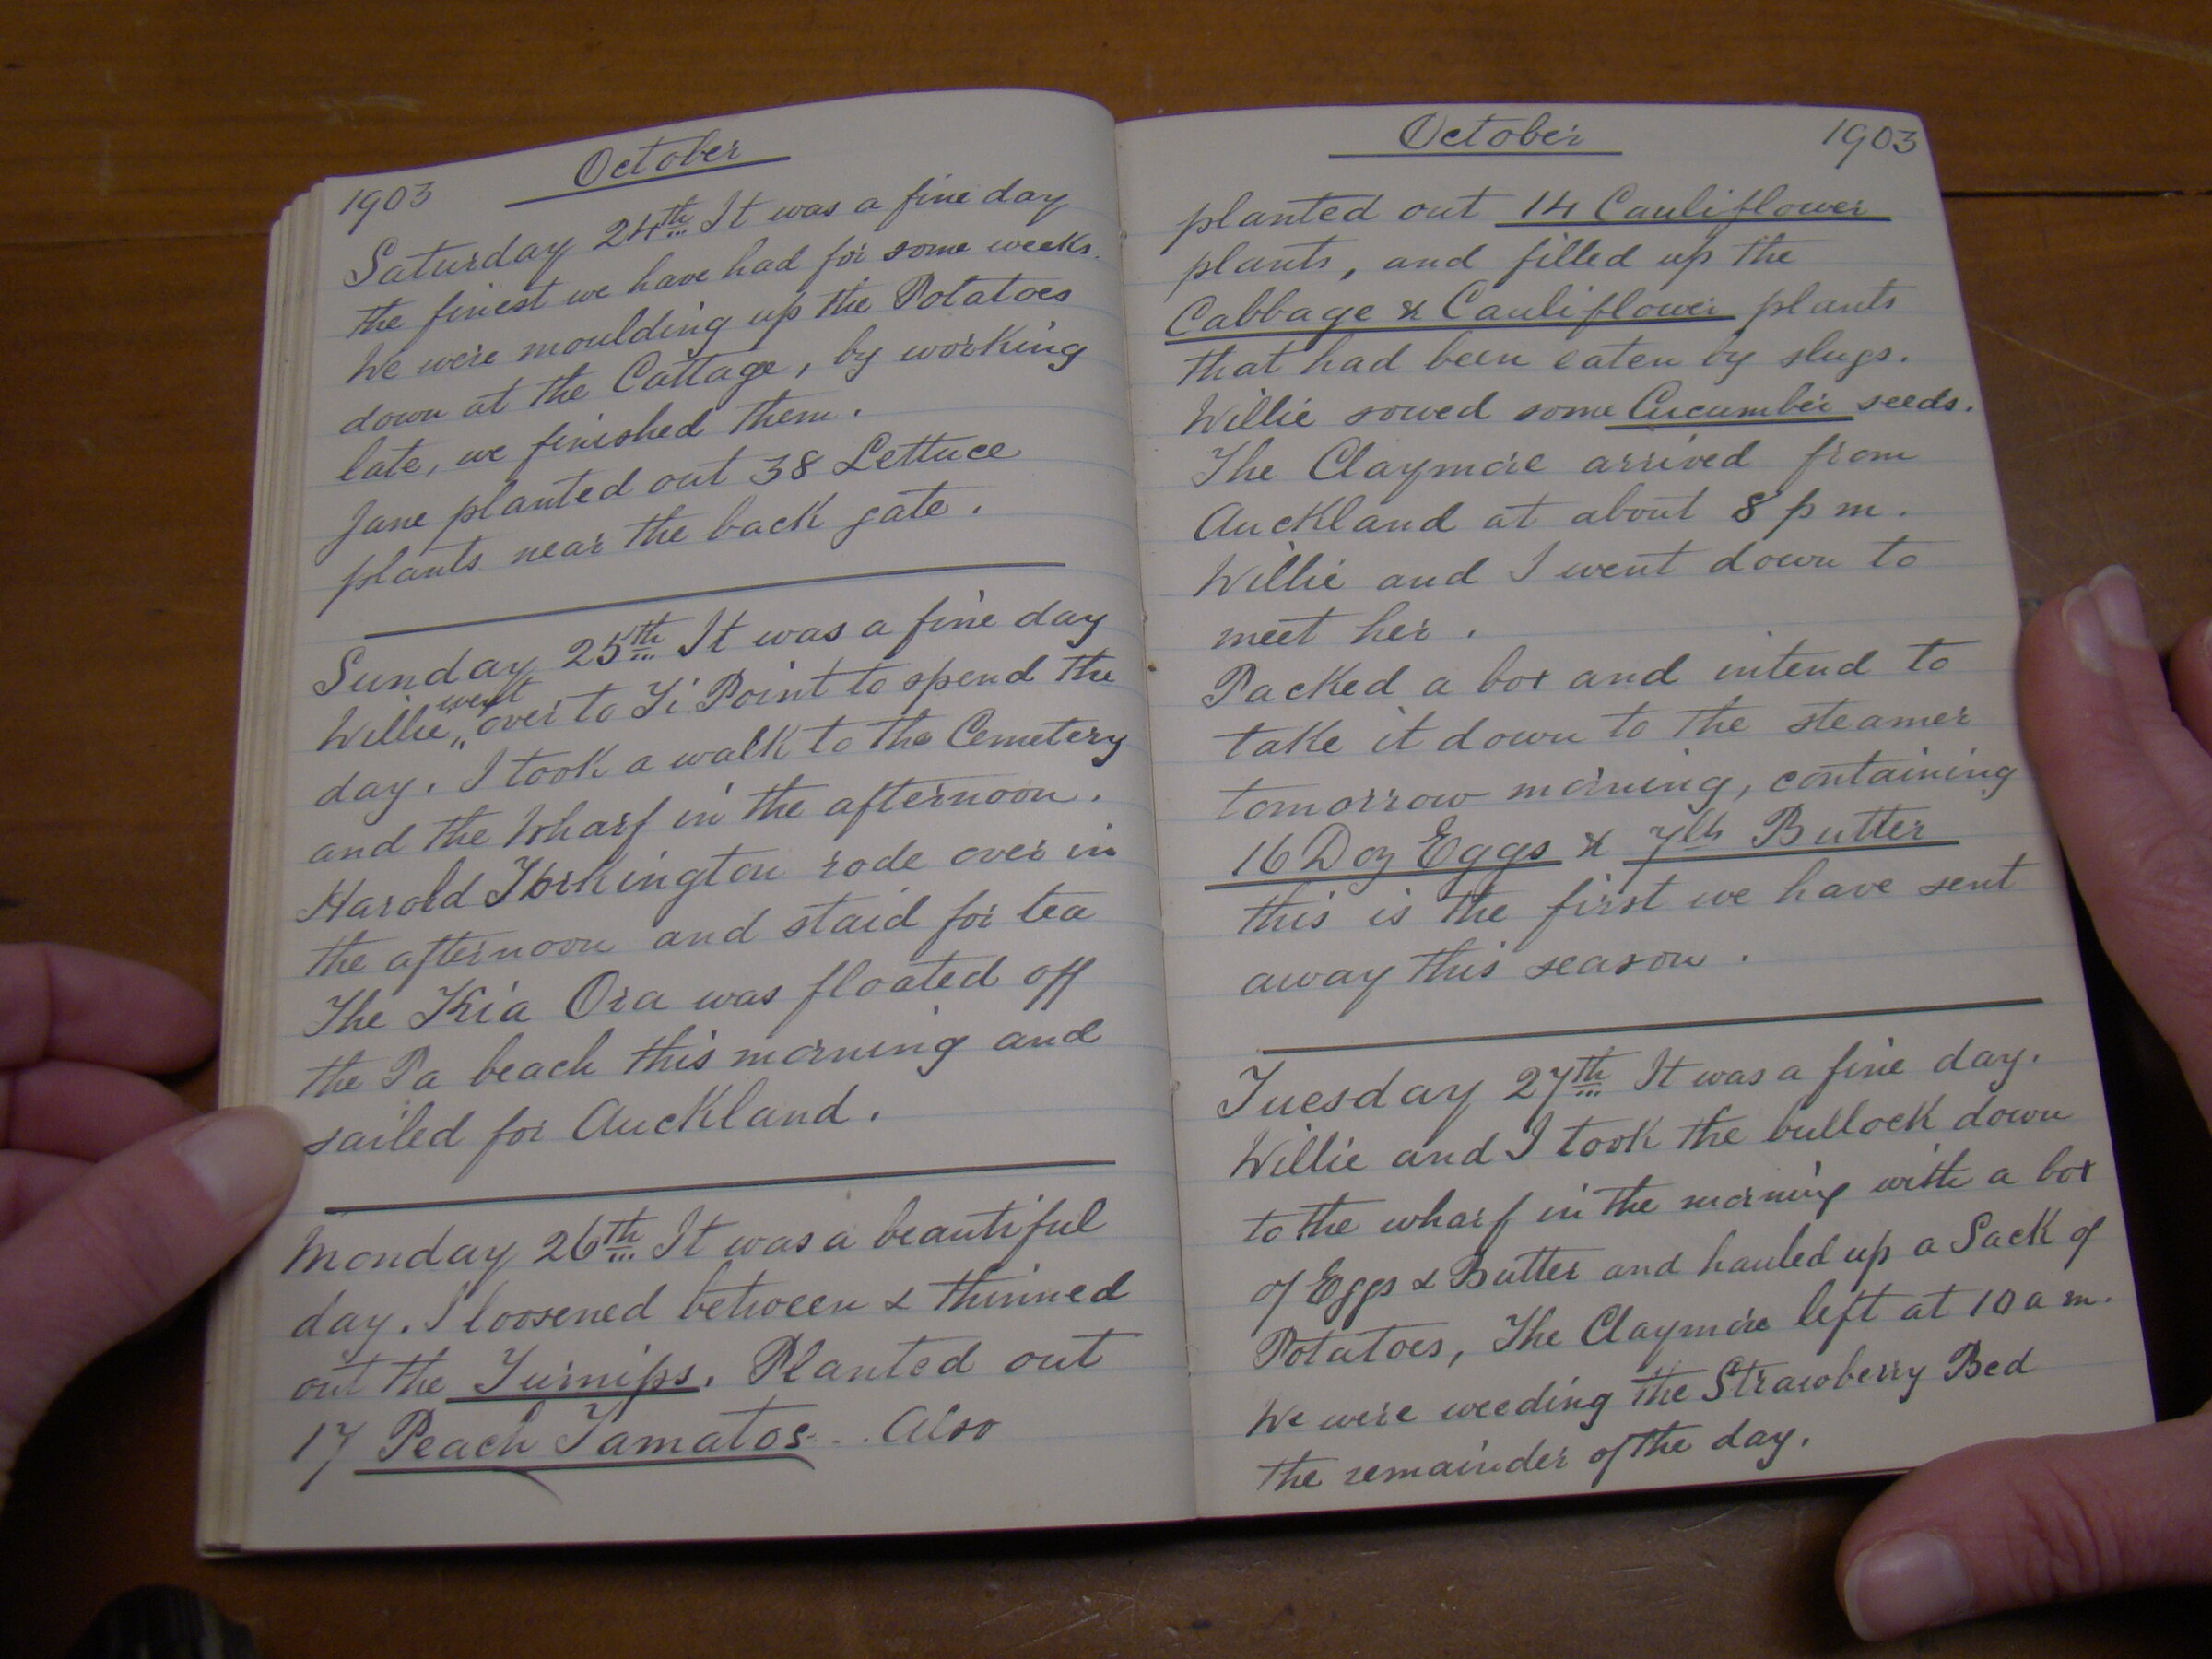 1903 October
Saturday 24th It was a fine day
the finest we have had for some weeks.
We were moulding up the Potatoes
down at the Cottage, by working
late, we finished them.
Jane planted out 38 Lettuce
plants near the back gate.
Sunday 25th It was a fine day
Willie went over to Ti Point to spend the
day. I took a walk to the Cemetery
and the Wharf in the afternoon.
Harold Torkington rode over in
the afternoon and staid for tea
The Kia Ora was floated off
the Pa beach this morning and
sailed for Auckland.
Monday 26th It was a beautiful
day. I loosened between & thinned
out the Turnips. Planted out
17 Peach Tamatos. Also
October 1903
planted out 14 Cauliflower
plants, and filled up the
Cabbage & Cauliflower plants
that had been eaten by slugs.
Willie sowed some Cucumber seeds.
The Claymore arrived from
Auckland at about 8 p m.
Willie and I went down to
meet her.
Packed a box and intend to
take it down to the steamer
tomorrow morning, containing
16 Doz Eggs & 7lb Butter
this is the first we have sent
away this season.
Tuesday 27th It was a fine day.
Willie and I took the bullock down
to the wharf in the morning with a box
of Eggs & Butter and hauled up a Sack of
Potatoes, The Claymore left at 10 a m.
We were weeding the Strawberry Bed
the remainder of the day.